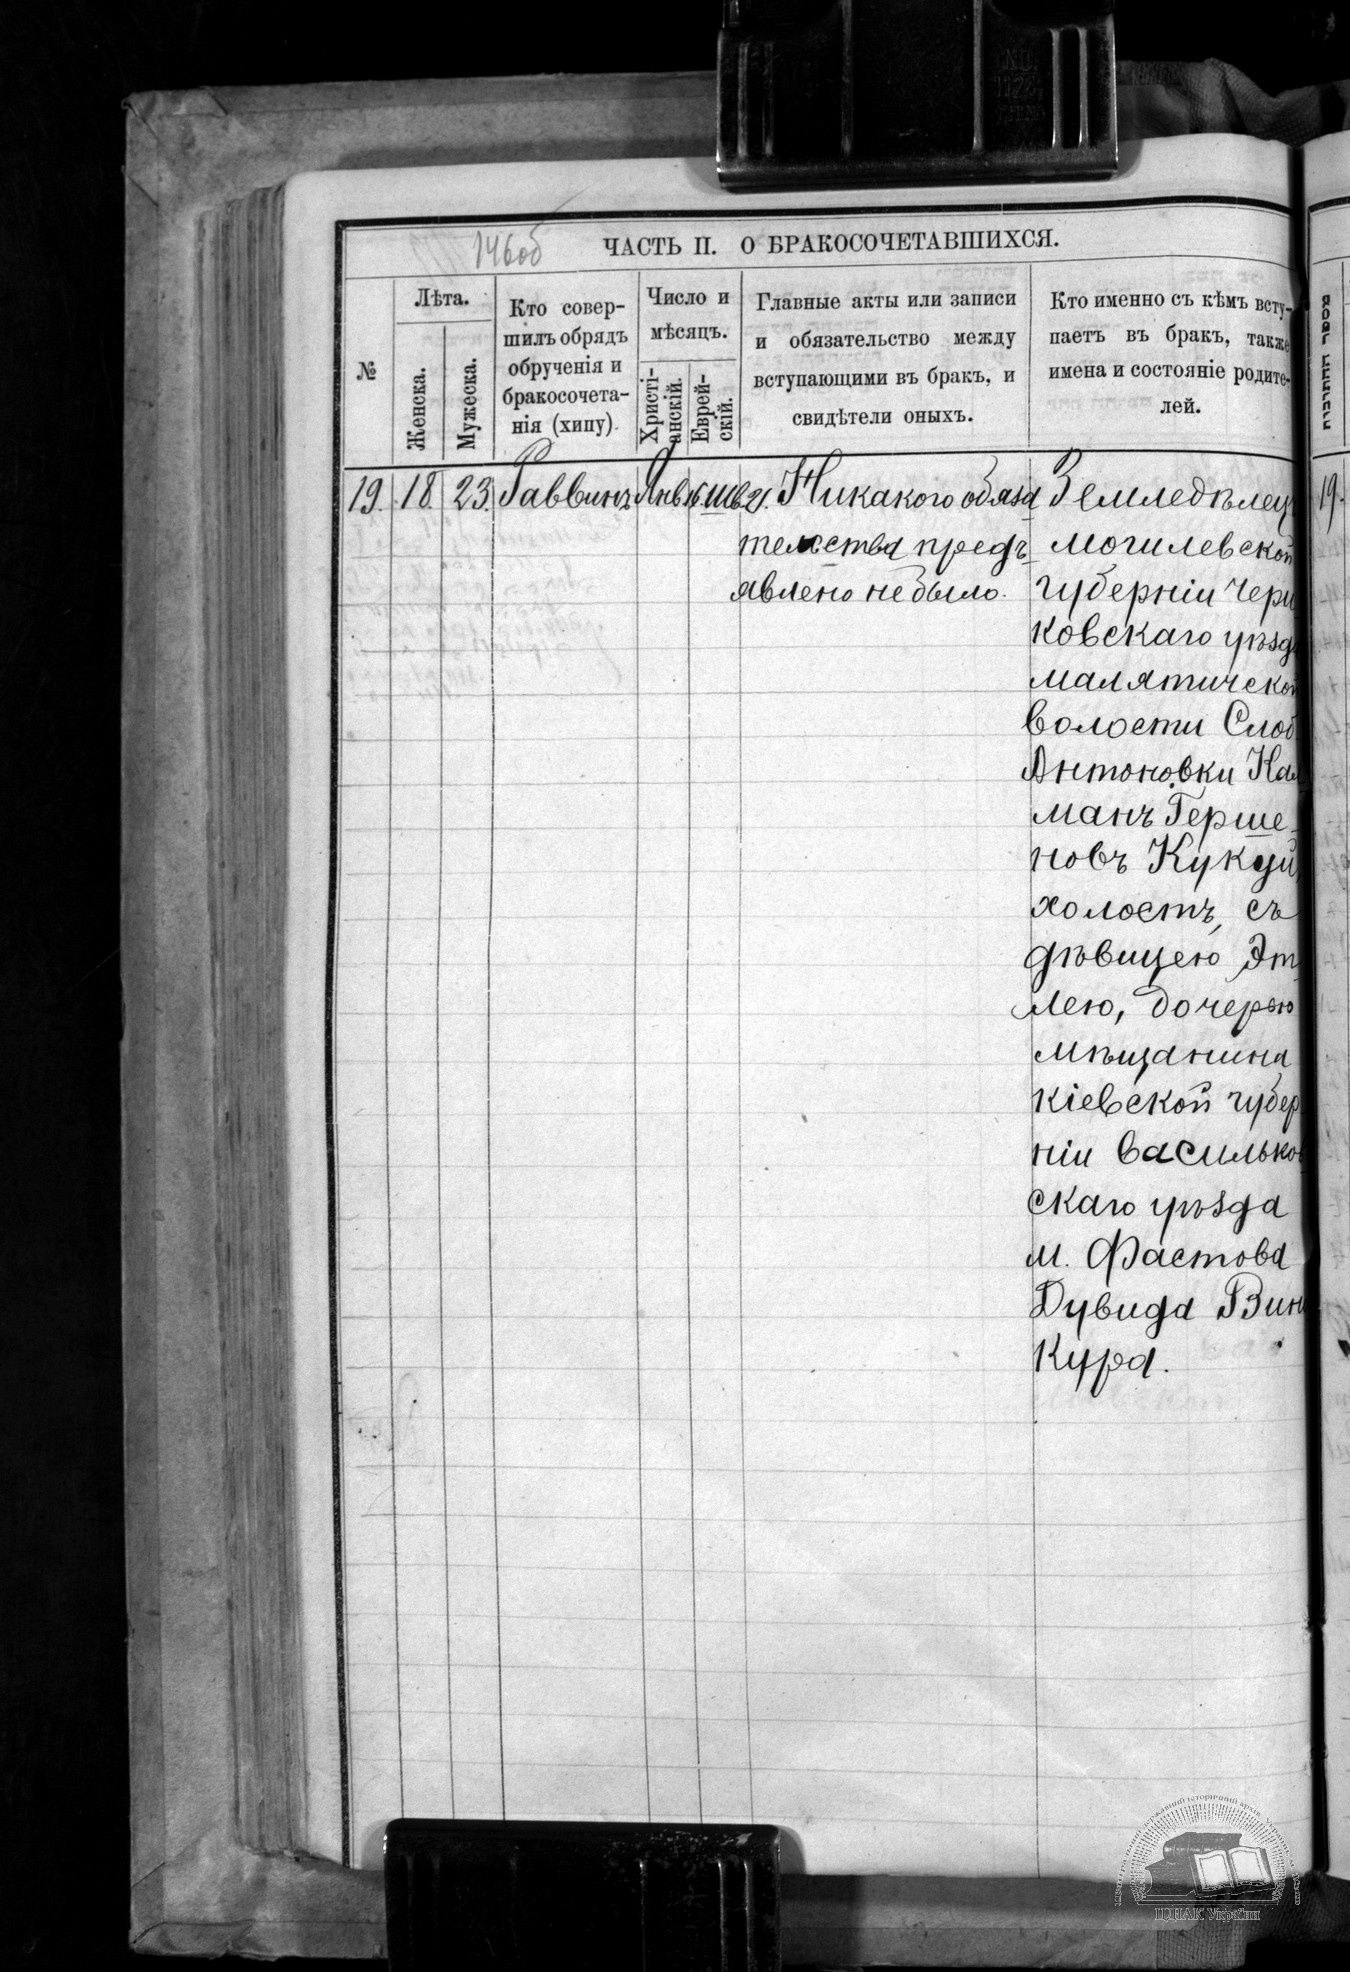 NO.
146об
ЧАСТЬ II. О БРАКОСОЧЕТАВШИХСЯ.
№
Лѣта.
Женска.
Мужеска.
Кто совер-
шилъ обрядъ
обрученія и
бракосочета-
нія (хипу)
Число и
мѣсяцъ.
Христі-
анскій.
Еврей-
скій.
Главные акты или записи
и обязательство между
вступающими въ брак, и
свидѣтели оныхъ.
Кто именно съ кѣмъ всту-
паетъ въ брак, также
имена и состояніе родите-
лей.
19. 18. 23. Раввинъ Янв. Шв. 21. Никакого обяза
тельства предъ
явлено не было.
Земледѣлецъ
могилевской
губерніи Чери
ковскаго уѣзда
малятичской
волости Слоб
Антоновки Кал
манъ Герше
новъ Кукуй
холостъ, съ
дѣвицею Эт
лею, дочерью
мѣщанина
кіевской губер
ніи Васильков
скаго уѣзда
м. Фастова
Дувида Вин
кура.
19.
ЦДІАК України